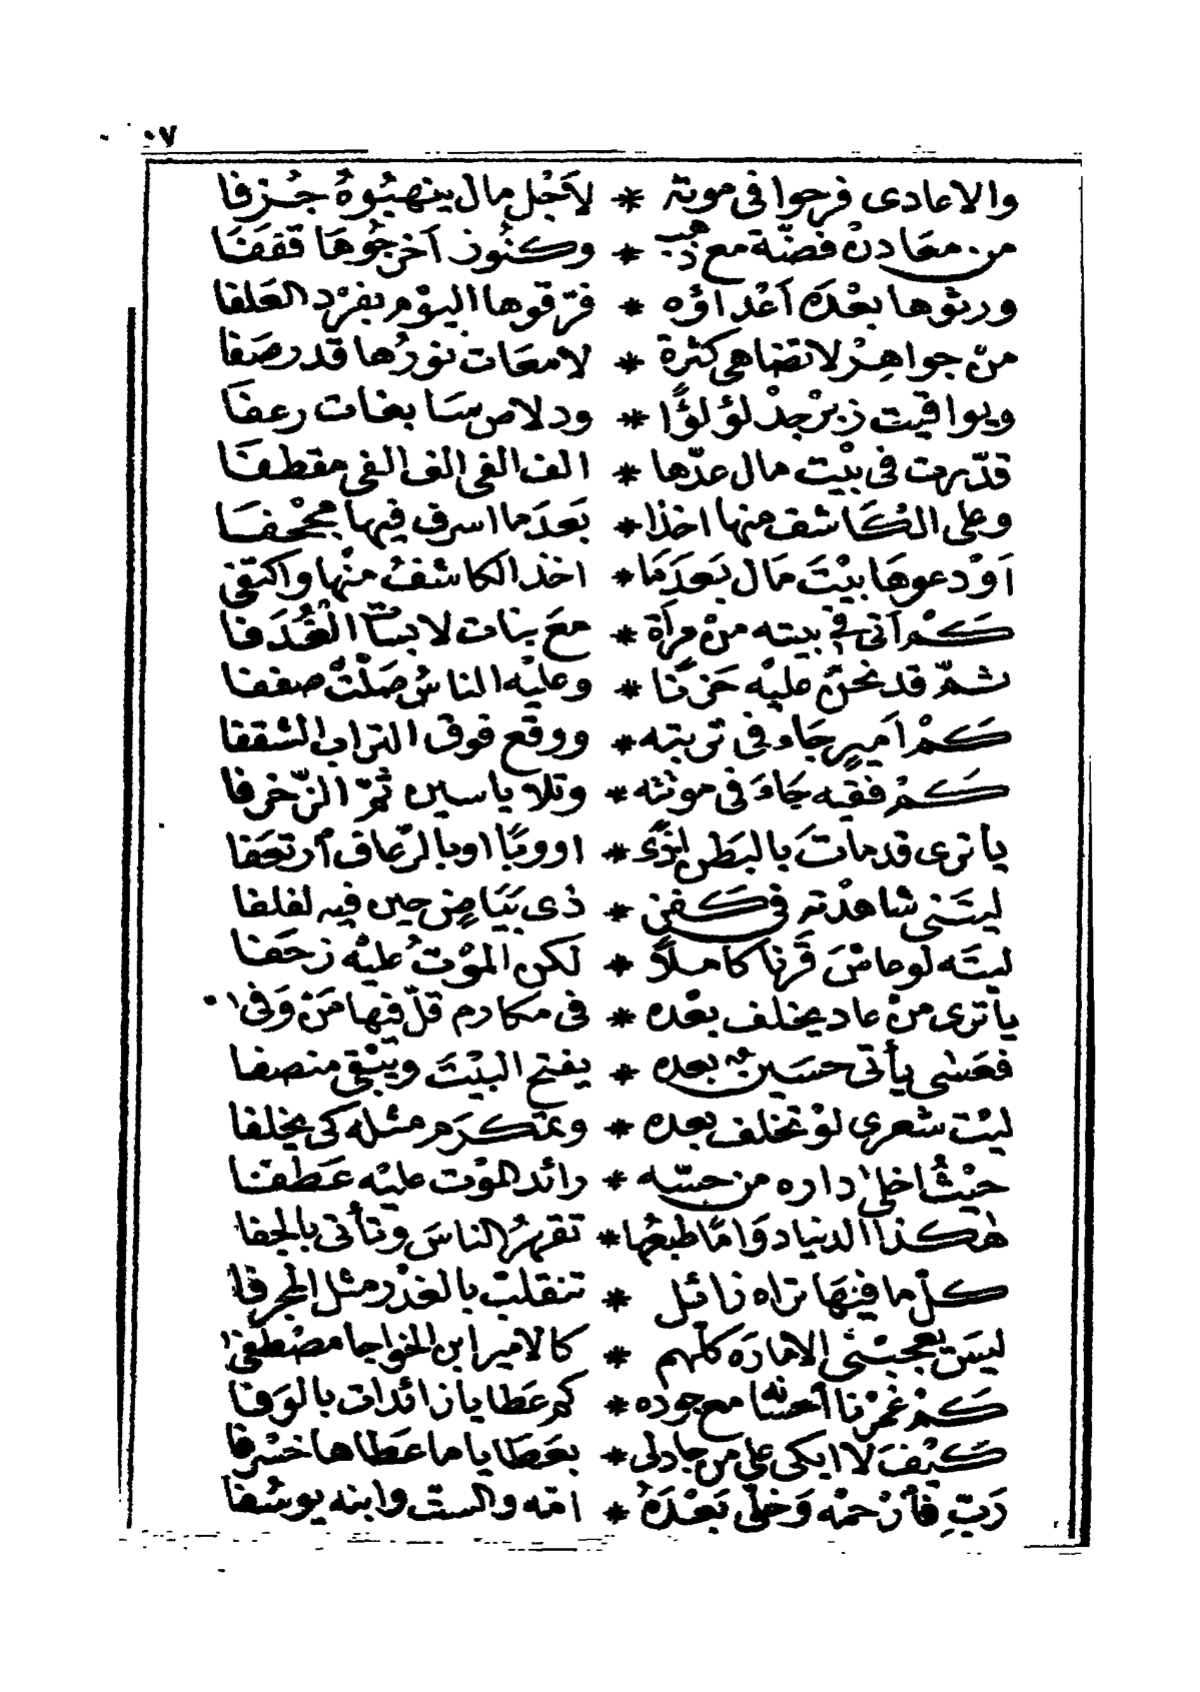 ٠٧
والاعادى فرحوا فى موته * لاَجْل مال ينهبُوهُ جُزفا
من معَادنْ فضّة مع ذهب * وكنُوز آخرجُوهَا قفَفَا
ورثوها بعْدَه اَعْداؤه * فرّقوها اليوْم بفرْد العَلفا
منْ جواهِرْ لا تضاهى كثرة * لامعَات نورُها قد رصَفا
ويواقيت زبرْجدْ لؤلؤًا * ودلاص سَابغات رعفَا
قدّرت فى بيْت مال عدّها * الف الفى الف الفى مقطفَا
وعلى الكَاشف منها اخذا * بَعدَ ما اسرف فيها مجْحفَا
اَوْدعوهَا بيْتَ مَال بَعدَمَا * اخذ الكاشفْ منْها واكتفى
كَمْ آتى فى بيته منْ مرأة * معَ بنات لابسَات الغُدَفا
ثمّ قد نحنُ عليْه حَزَنًا * وعليْه الناسُ صَلّتْ صففا
كَمْ اَمير جَاء فى تربته * ووقع فوق التراب الشقفا
كَمْ فقيه جَاءَ فى موْته * وتلا ياسين ثمّ الزّخرفا
يا ترى قد ماتَ بالبَطن * او وبًا او بالرّعاف ارتعَفا
ليتَنى شاهدْته فى كَفن * ذى بَيَاضٍ حين فيه لفلفا
ليتَه لو عاشَ قَرنا كاملاً * لكن الموْتُ عليْه زحَفا
يا ترى منْ عاد يخلف بعْده * فى مكارم قلّ فيها مَنْ وَفى
فعَسٰى يأتى حسَين بعده * يفتح البيْتَ ويَبْقى منصفا
ليْت شعرى لوْ تخلف بعده * وبمتكرَم مثله كى يخلفا
حيْثُ اخلى داره من حسّه * رائد الموْت عليْه عَطفَا
هٰكذا الدنيا دوَامًا طبعُها * تقهرُ الناسَ وتأتى بالجفا
كلّ ما فيْهَا تراه زائل * تنقلبْ بالغدْر مثل المجرفا
ليسَ يعجبْنى الامارَه كلّهم * كالامير ابن الخواجا مصْطفى
كَمْ غمرْنا اُحسْنًا مع جوده * كم عَطايا زائدات بالوَفا
كَيْفَ لا ابكى على من جادلى * بعَطَايا ما عَطاها خسْرفا
رَبّ فأرْحمْه وَخلّى بَعْدَهُ * امّه والست وابنه يوسُفا